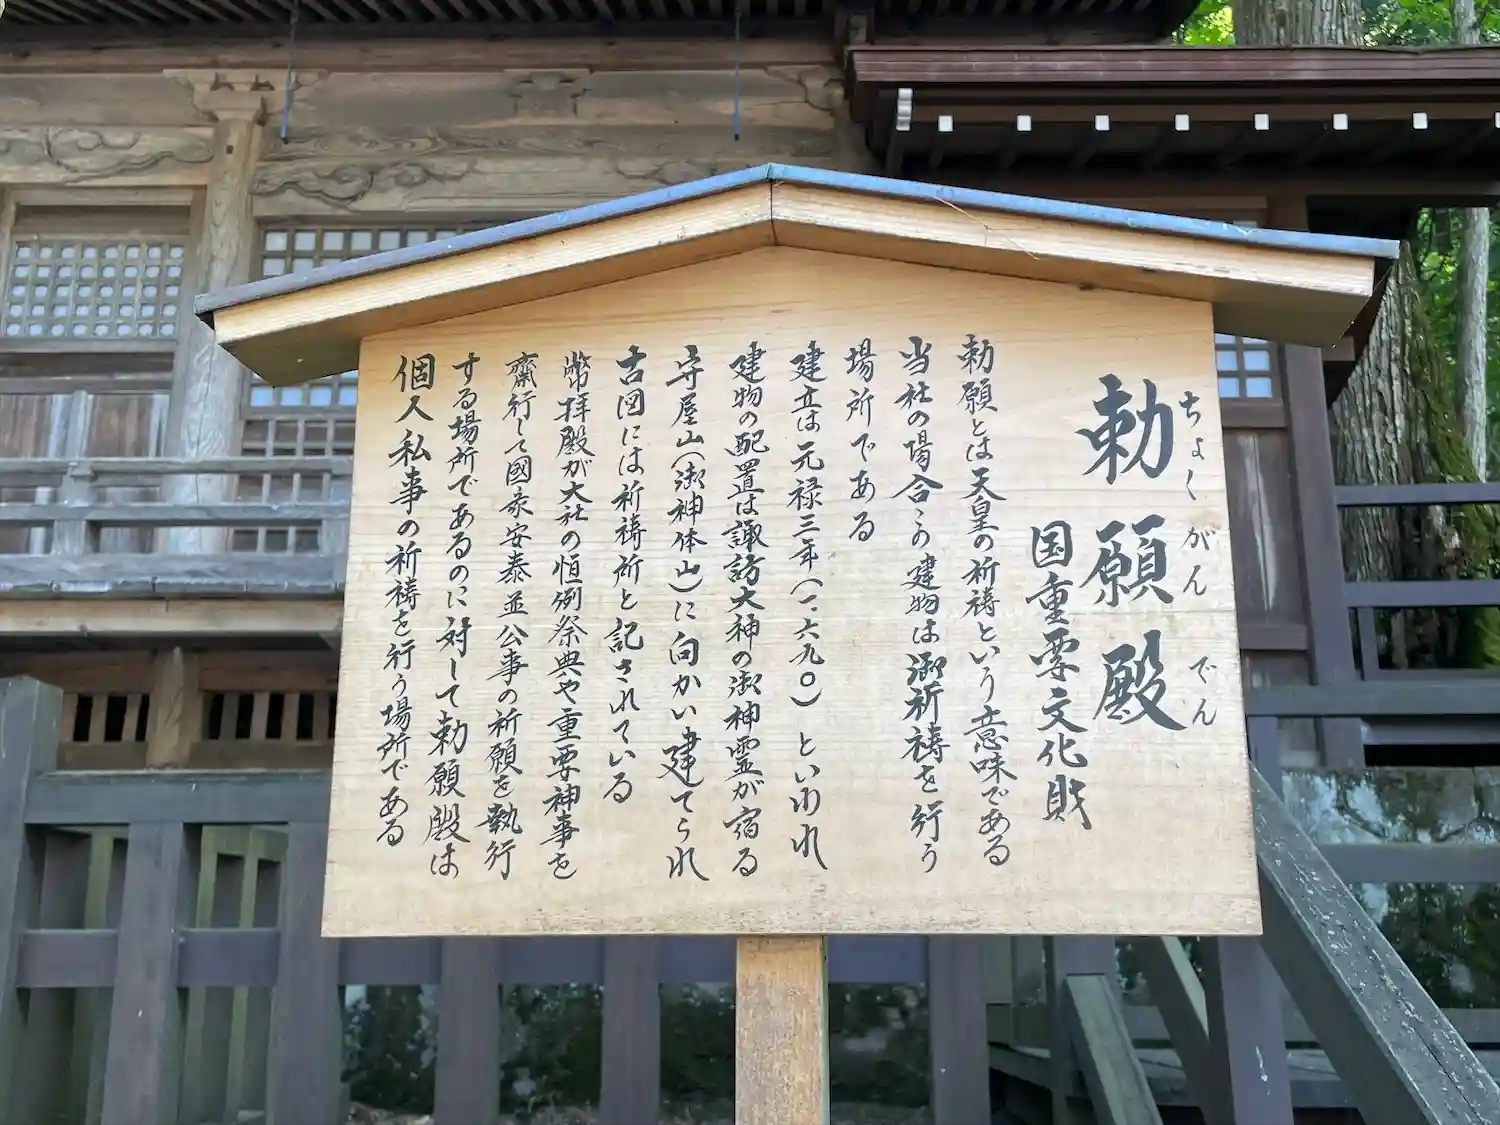 勅願殿
ちょくがんでん
国重要文化財
勅願とは天皇の祈祷という意味である
当社の場合この建物は御祈祷を行う
場所である
建立は元禄三年(一六九〇)といわれ
建物の配置は諏訪大神の御神霊が宿る
守屋山(御神体山)に向かい建てられ
古図には祈祷所と記されている
幣拝殿が大社の恒例祭典や重要神事を
齋行して國家安泰並公事の祈願を執行
する場所であるのに対して勅願殿は
個人私事の祈祷を行う場所である